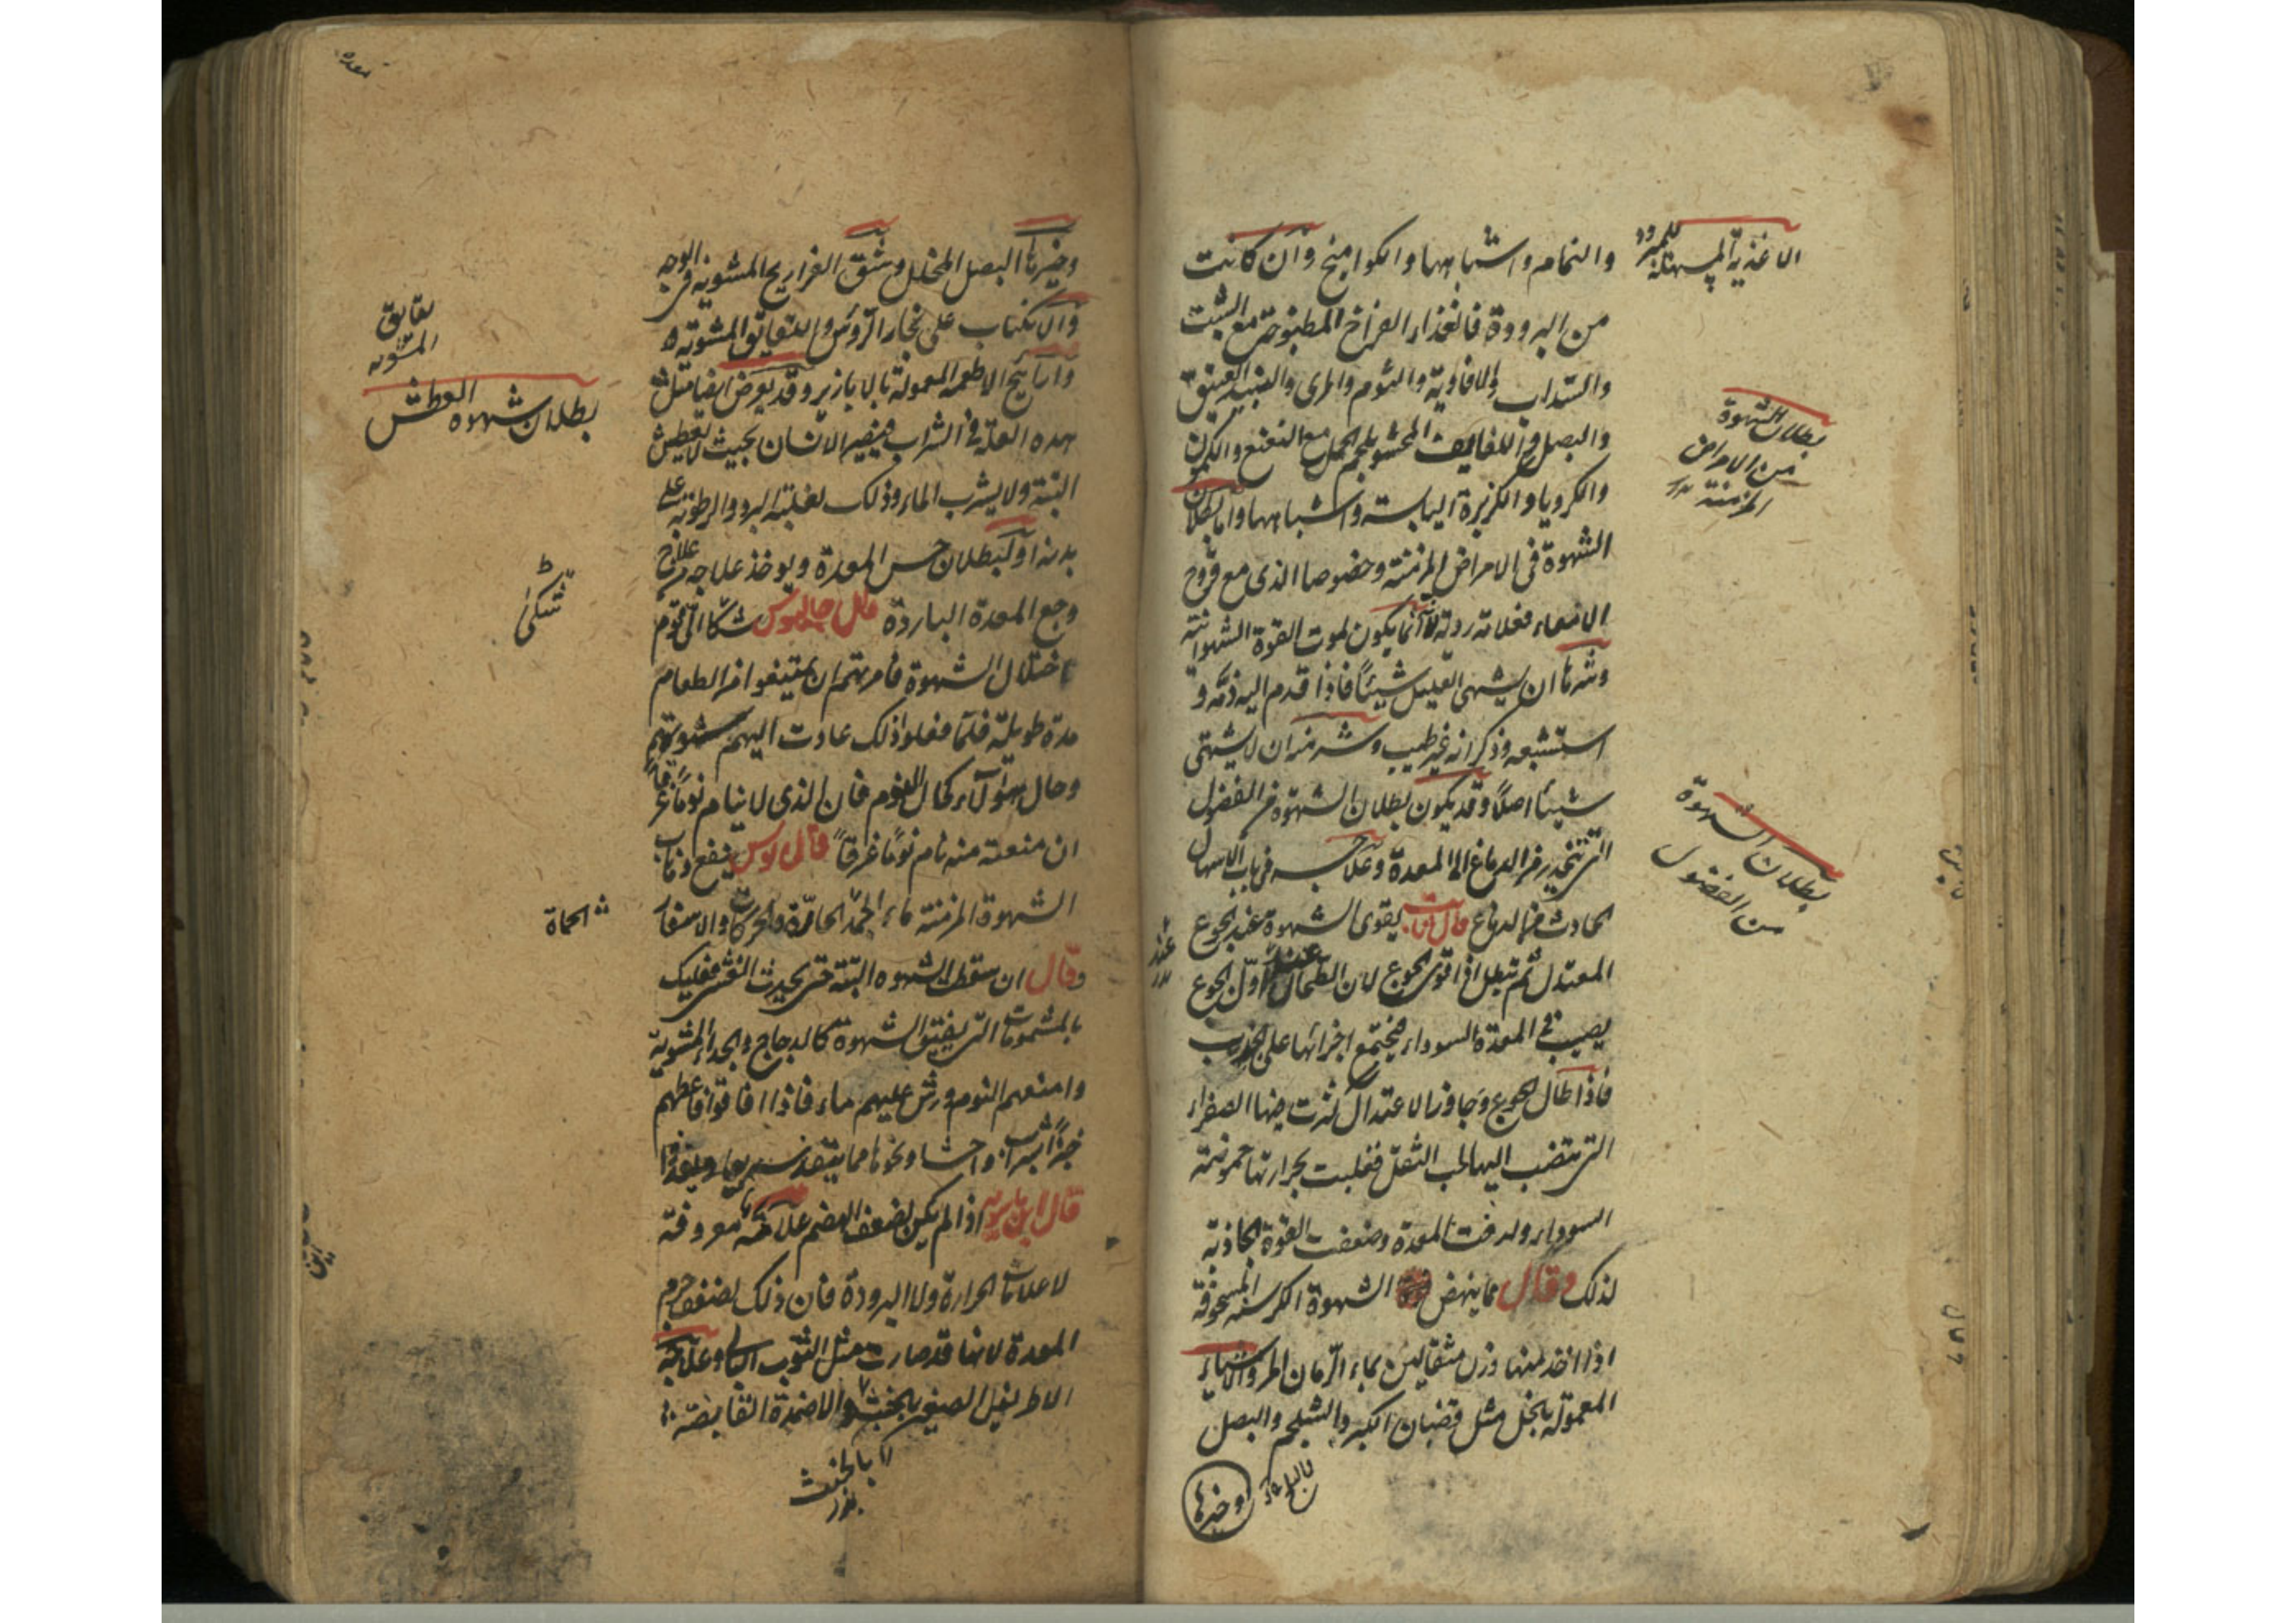 والنمام واشباهها والكوامخ وان كانت
من البرودة فالغذاء الفراخ المطبوخة مع الشبت
والسداب والافاوية والثوم والمرى والنبيذ العتيق
والبصل واللفايف المحشو بلحم الحمل مع النعنع والكمون
والكرويا والكزبرة اليابسة واشباهها واما بطلان
الشهوة فى الامراض المزمنة وخصوصا الذى مع قروح
الامعاء فعلامة ردية لانه انما يكون لموت القوة الشهوانية
وشرها ان يشتهى العليل شيئاً فاذا قدم اليه ذمه و
استشبعه وذكر انه غير طيب وشر منه ان لا يشتهى
شيئا اصلاً وقد يكون بطلان الشهوة من الفضول
التى تنحدر من الدماغ الى المعدة وعلاجه فى باب الاسهال
الحادث من الدماغ قال يقوى الشهوة عند الجوع
المعتدل ثم تبطل اذا قوى الجوع لان الطحال عند اول الجوع
يصب فى المعدة السوداء فيجتمع اجزائها على
فاذا طال الجوع وجاوز الاعتدال كثرت فيها الصفراء
التى تنصب اليها لجب الثفل فغلبت بحرارتها حموضة
السوداء ولدغت المعدة وضعفت القوة الجاذبة
لذلك وقال مما ينهض الشهوة الكرسنه المسحوقة
اذا اخذ منها وزن مثقالين بماء الرمان المر والاشياء
المعمولة بالخل مثل قضبان الكبر والشلجم والبصل
وخيرها
الاغذية المسهلة للمبرود
بطلان الشهوة
من الامراض
المزمنة
بطلان الشهوة
من الفضول
عند
وخيرها البصل المخلل وشق الفراريج المشوية فى الوجه
والانكباب على بخار الرؤس والنقانق المشوية
وارائيح الاطعمه المعمولة بالابازير وقد يعرض ايضا مثل
هذه العلة فى الشراب فيصير الانسان بحيث لا يعطش
البتة ولا يشرب الماء وذلك لغلبة البرد والرطوبة على
بدنه او لبطلان حس المعدة ويوخذ علاجه من علاج
وجع المعدة الباردة قال جالينوس شكا الى قوم
اختلال الشهوة فامرتهم ان يمتنعوا من الطعام
مدة طويلة فلما فعلوا ذلك عادت اليهم شهوتهم
وحال هؤلاء كحال النوم فان الذى لا ينام نوماً غرقاً
ان منعته منه نام نوماً غرقاً قال بوس ينفع ذهاب
الشهوة المزمنة ماء الحمة الحارة والحركات والاسفار
وقال ان سقطت الشهوه البتة حتى يحدث الغشى فعليك
بالمشمومات التى يفتق الشهوة كالدجاج والجداء المشوية
وامنعهم النوم ورش عليهم ماء فاذا افاقوا فاعطهم
خبزاً بشراب او احساء ونحوها مما ينفذ سريعا
قال ابن ماسويه اذا لم يكن لضعف الهضم علامة معروفة
لا علامات الحرارة ولا البرودة فان ذلك لضعف جرم
المعدة لانها قد صارت مثل الثوب البالى وعلاجه
الاطريفل الصغير بالخبث والاضمدة القابضة
نقانق
المشويه
بطلان شهوه العطش
تشكى
الحماة
بالخبث
معده